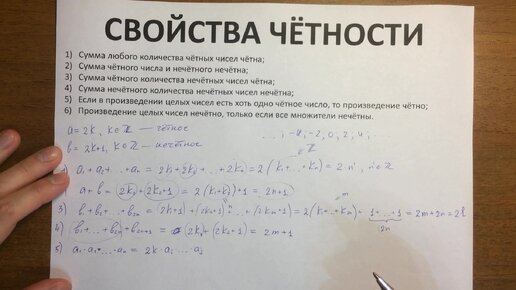 СВОЙСТВА ЧЁТНОСТИ
1) Сумма любого количества чётных чисел чётна;
2) Сумма чётного числа и нечётного нечётна;
3) Сумма чётного количества нечётных чисел чётна;
4) Сумма нечётного количества нечётных чисел нечётна;
5) Если в произведении целых чисел есть хоть одно чётное число, то произведение чётно;
6) Произведение целых чисел нечётно, только если все множители нечётны.
a = 2k, k∈ℤ — чётное ...; -4; -2; 0; 2; 4; ...
b = 2k+1, k∈ℤ — нечётное
a₁ + a₂ + ... + aₙ = 2k₁ + 2k₂ + ... + 2kₙ = 2(k₁ + ... + kₙ) = 2m, ∈ℤ
a + b = 2k₁ + 2k₂+1 = 2(k₁+k₂)+1 = 2n+1
3) b₁ + b₂ + ... + b₂ₙ = (2k₁+1) + (2k₂+1) + ... + (2k₂ₙ+1) = 2(k₁+...+k₂ₙ) + 1+...+1 = 2m + 2n = 2l
2n
4) b₁ + ... + b₂ₙ + b₂ₙ₊₁ = 2k₁ + (2k₂+1) = 2m+1
5) a₁ · a₂ · ... · aₙ = 2k · aᵢ ... aⱼ